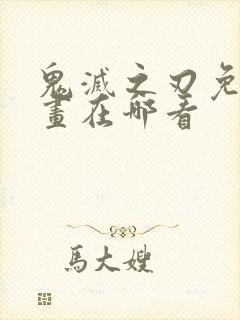 鬼滅之刃免
畫在哪看
馬大嫂